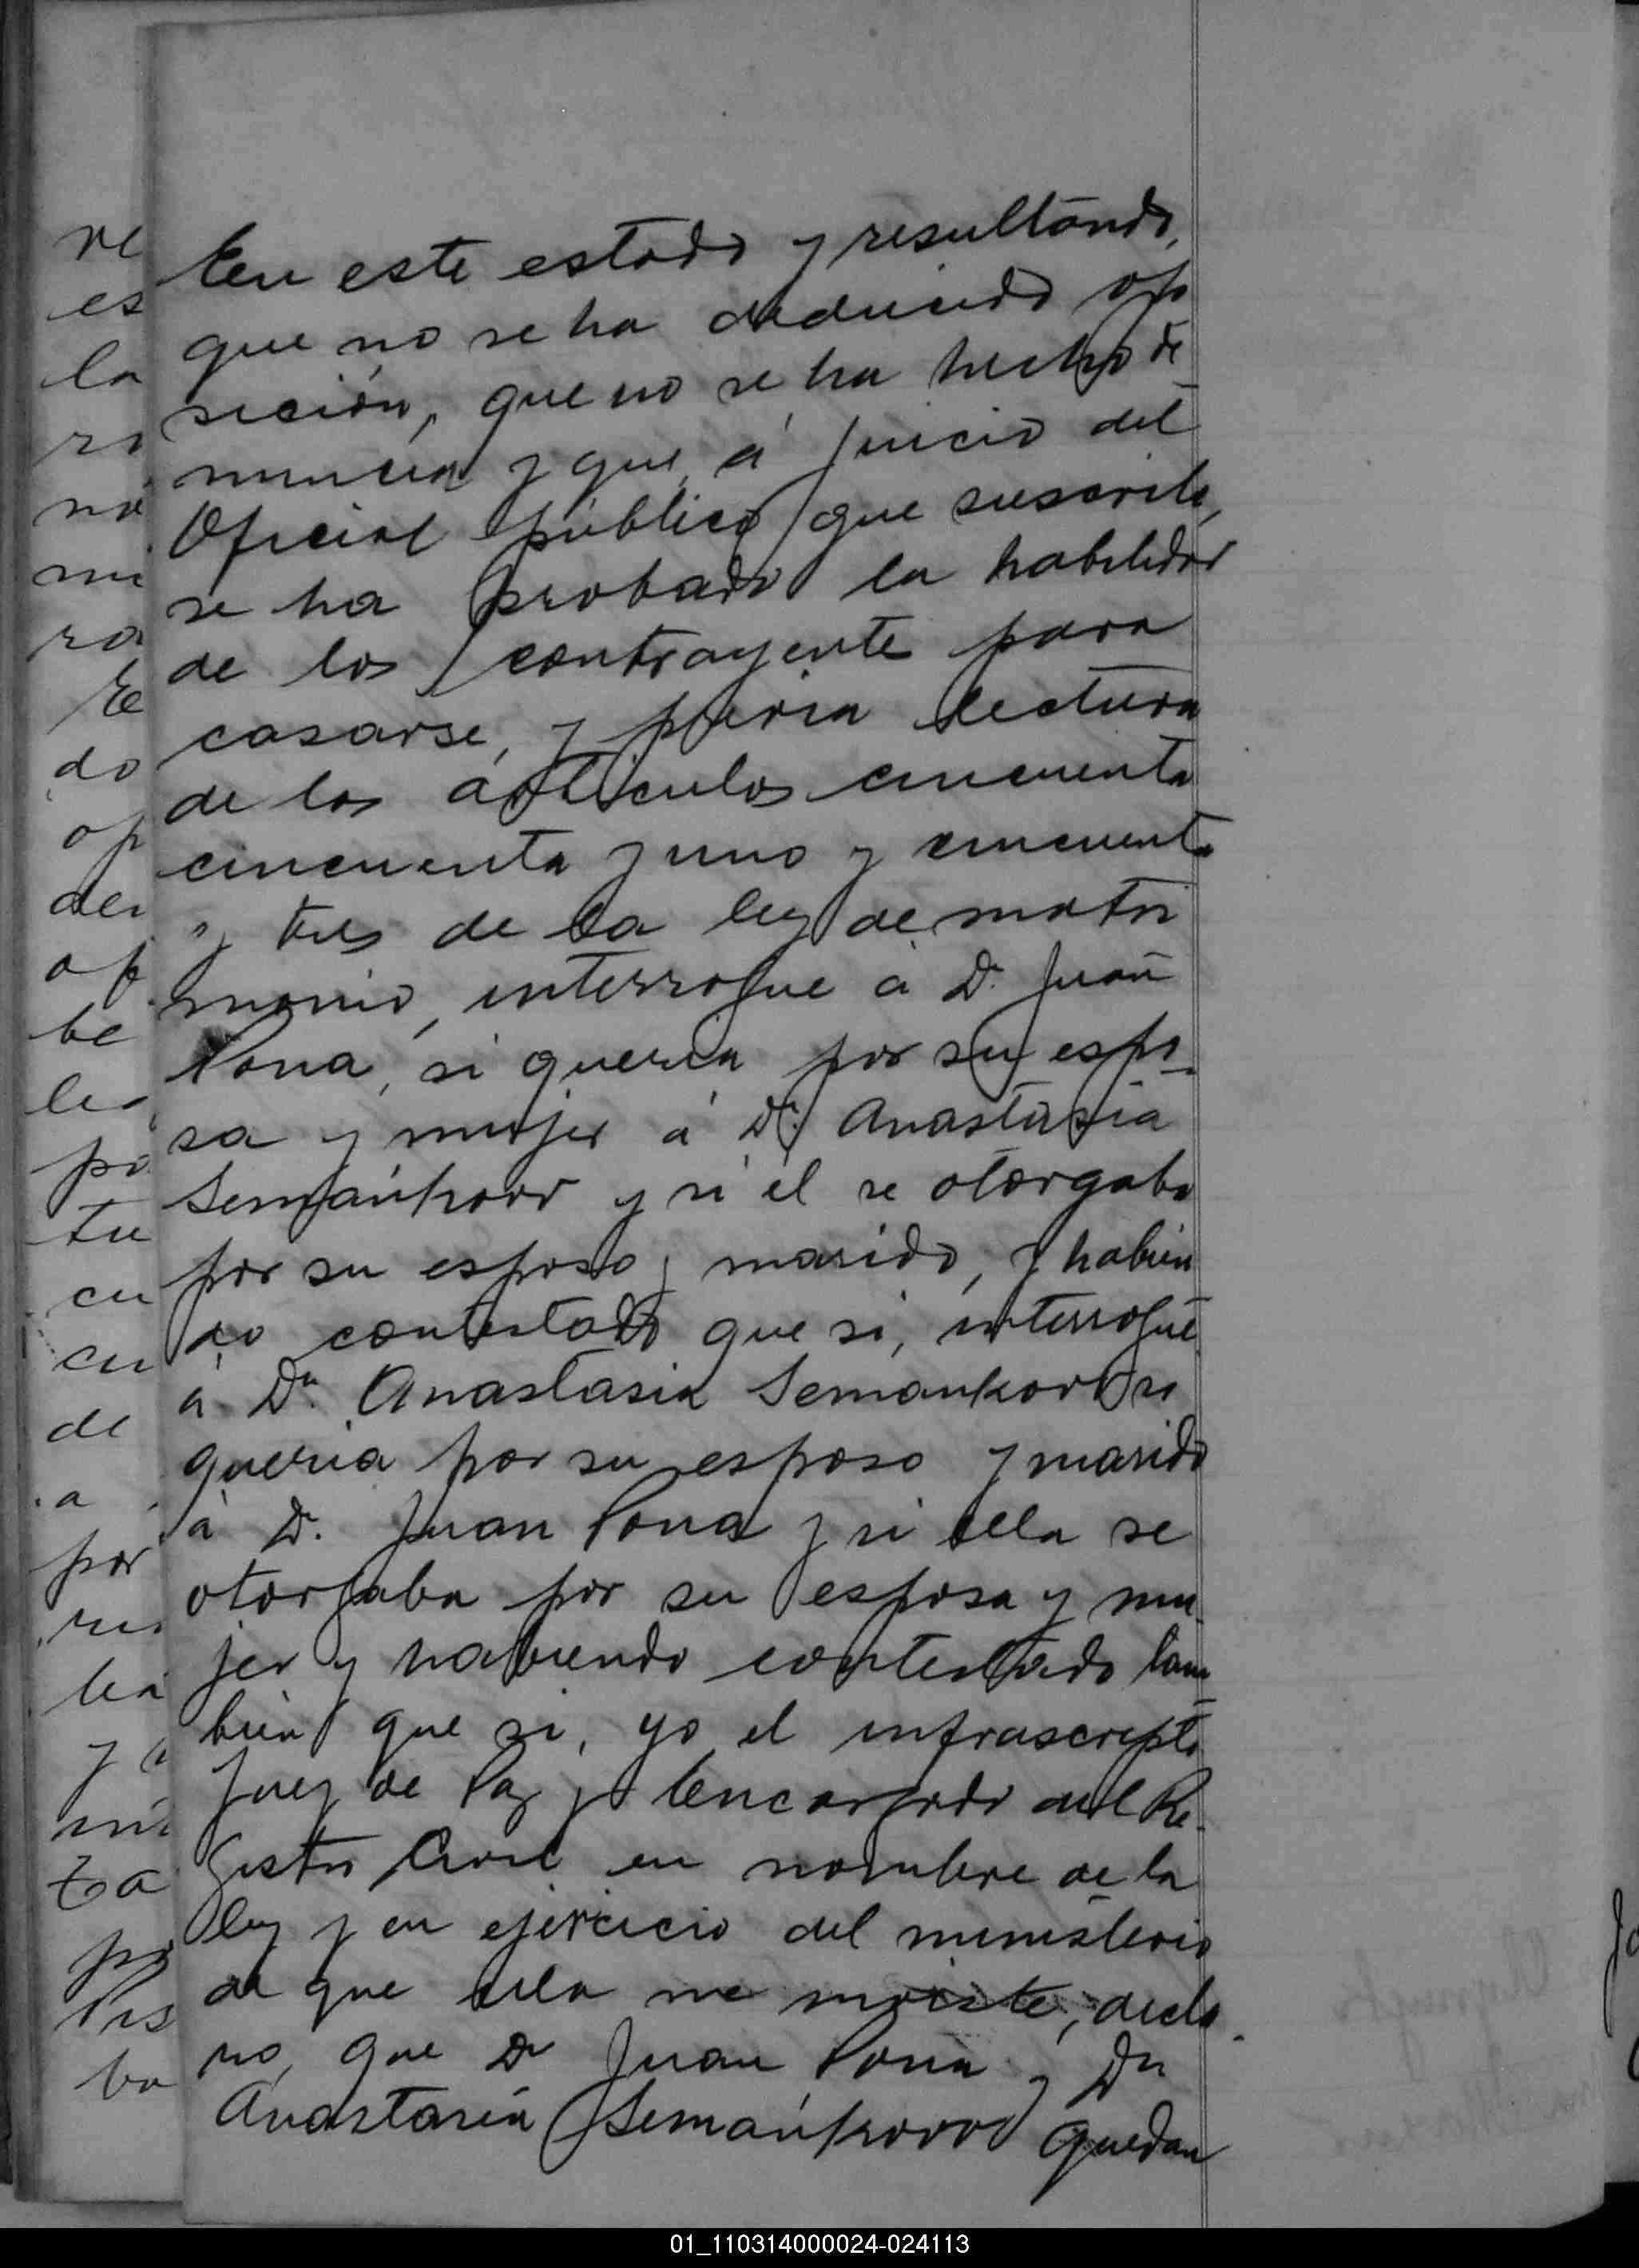 En este estado y resultando,
que no se ha deducido opo
sición, que no se ha hecho de
nuncia y que, á juicio del
Oficial público que suscribe,
se ha probado la habilidad
de los contrayente para
casarse, y previa lectura
de los artículos cincuenta
cincuenta y uno y cincuenta
y tres de la ley de matri
monio, interrogue á D. Juan
Pona, si queria por su espo-
sa y mujer á Dª Anastasia
Semankow y si él se otorgaba
por su esposo y marido, y habien
do contestado que si, interrogué
á Dª Anastasia Semankow si
queria por su esposo y marido
á D. Juan Pona y si ella se
otorgaba por su esposa y mu-
jer y habiendo contestado tam
bien que si, yo el infrascripto
Juez de Paz y Encargado del Re-
gistro Civil en nombre de la
ley y en ejercicio del ministerio
de que ella me inviste, decla-
ro, que D Juan Pona y Dª
Anastasia Semankow quedan
re
es
la
ro
no
mi
ra
E
do
op
den
op
be
po
tu
cu
cu
de
a
por
y
ta
po
ba
01_110314000024-024113